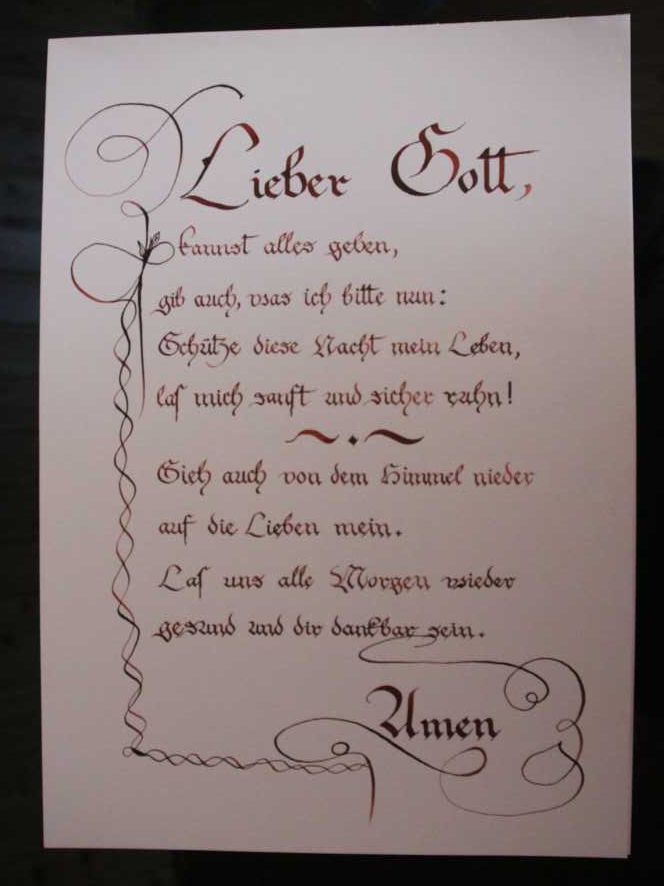 Lieber Gott,
kannst alles geben,
gib auch, was ich bitte nun:
Schütze diese Nacht mein Leben,
laſ mich sanft und sicher ruhn!
Sieh auch von dem Himmel nieder
auf die Lieben mein.
Laſ uns alle Morgen wieder
gesund und dir dankbar sein.
Amen